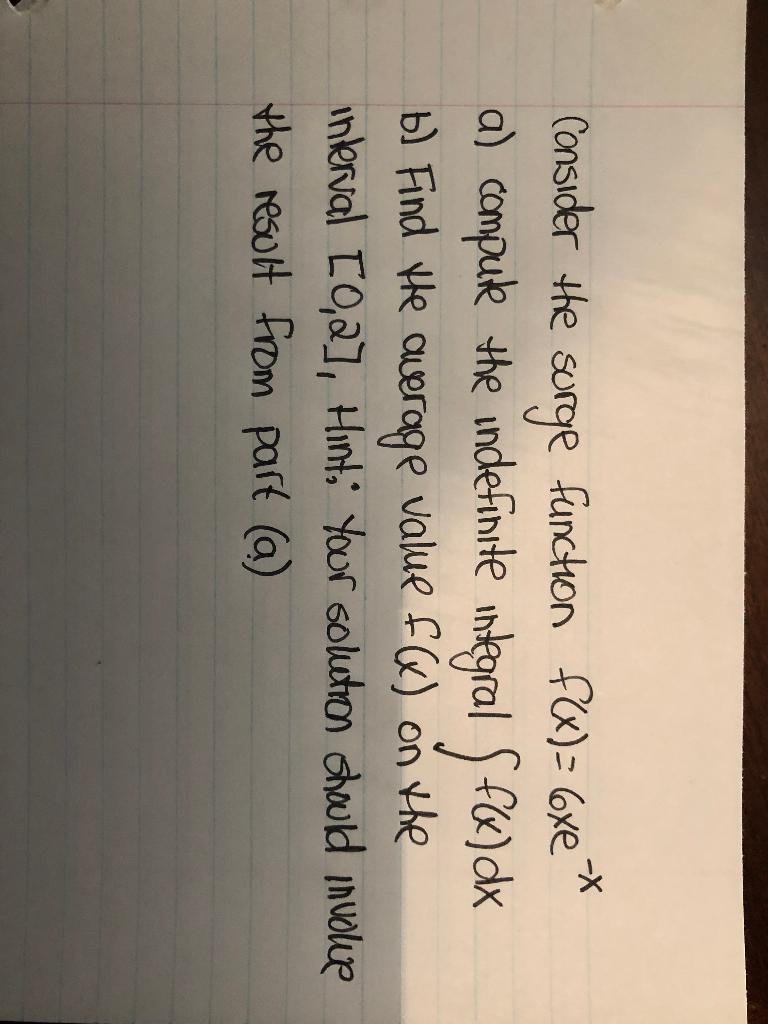 Consider the surge function f(x) = 6xe^-x
a) compute the indefinite integral ∫ f(x) dx
b) Find the average value f(x) on the
interval [0,2], Hint: Your solution should involve
the result from part (a)